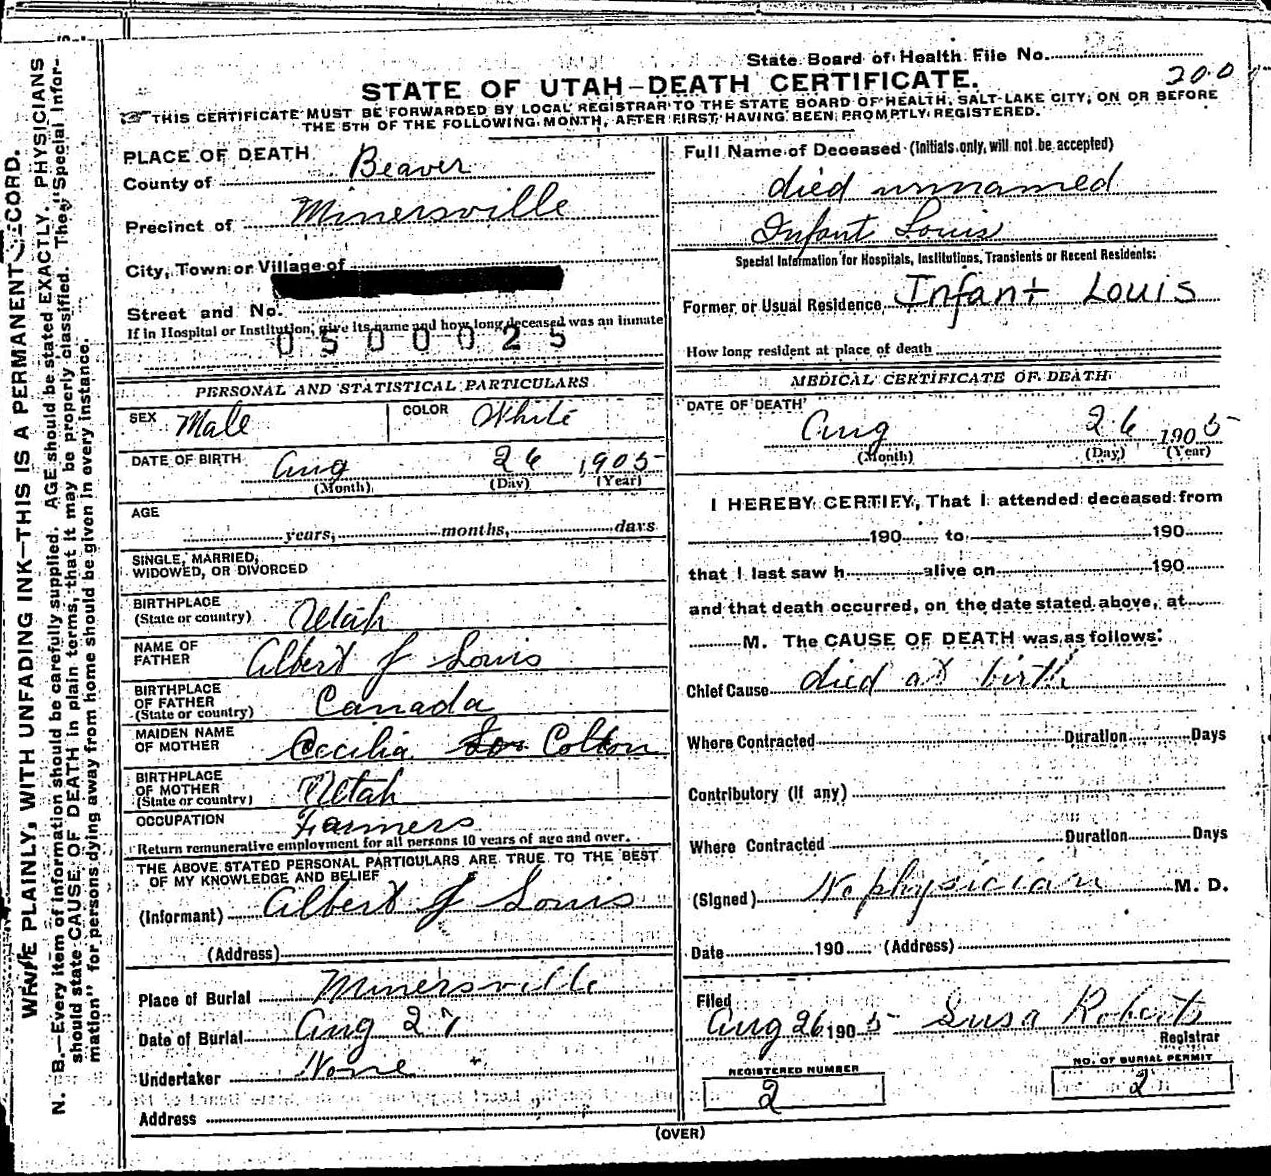 State Board of Health File No.
200
STATE OF UTAH–DEATH CERTIFICATE.
THIS CERTIFICATE MUST BE FORWARDED BY LOCAL REGISTRAR TO THE STATE BOARD OF HEALTH, SALT LAKE CITY, ON OR BEFORE
THE 5TH OF THE FOLLOWING MONTH, AFTER FIRST HAVING BEEN PROMPTLY REGISTERED.
PLACE OF DEATH
County of Beaver
Precinct of Minersville
City, Town or Village of
Street and No.
If in Hospital or Institution, give its name and how long deceased was an inmate
0500025
PERSONAL AND STATISTICAL PARTICULARS
SEX Male COLOR White
DATE OF BIRTH Aug 26 1905
(Month) (Day) (Year)
AGE
years, months, days
SINGLE, MARRIED,
WIDOWED, OR DIVORCED
BIRTHPLACE
(State or country) Utah
NAME OF
FATHER Albert J Louis
BIRTHPLACE
OF FATHER
(State or country) Canada
MAIDEN NAME
OF MOTHER Cecilia Colton
BIRTHPLACE
OF MOTHER
(State or country) Utah
OCCUPATION Farmers
Return remunerative employment for all persons 10 years of age and over.
THE ABOVE STATED PERSONAL PARTICULARS ARE TRUE TO THE BEST
OF MY KNOWLEDGE AND BELIEF
(Informant) Albert J Louis
(Address)
Place of Burial Minersville
Date of Burial Aug 27
Undertaker None
Address
Full Name of Deceased (Initials only, will not be accepted)
died unnamed
Infant Louis
Special Information for Hospitals, Institutions, Transients or Recent Residents:
Former or Usual Residence Infant Louis
How long resident at place of death
MEDICAL CERTIFICATE OF DEATH
DATE OF DEATH
Aug 26 1905
(Month) (Day) (Year)
I HEREBY CERTIFY, That I attended deceased from
190 to 190
that I last saw h alive on 190
and that death occurred, on the date stated above, at
M. The CAUSE OF DEATH was as follows:
Chief Cause died at birth
Where Contracted Duration Days
Contributory (If any)
Where Contracted Duration Days
(Signed) No physician M. D.
Date 190 (Address)
Filed
Aug 26 1905 Susa Roberts
Registrar
REGISTERED NUMBER
2
NO. OF BURIAL PERMIT
2
(OVER)
WRITE PLAINLY, WITH UNFADING INK–THIS IS A PERMANENT RECORD.
N. B.—Every item of information should be carefully supplied. AGE should be stated EXACTLY. PHYSICIANS
should state CAUSE OF DEATH in plain terms, that it may be properly classified. The "Special Infor-
mation" for persons dying away from home should be given in every instance.